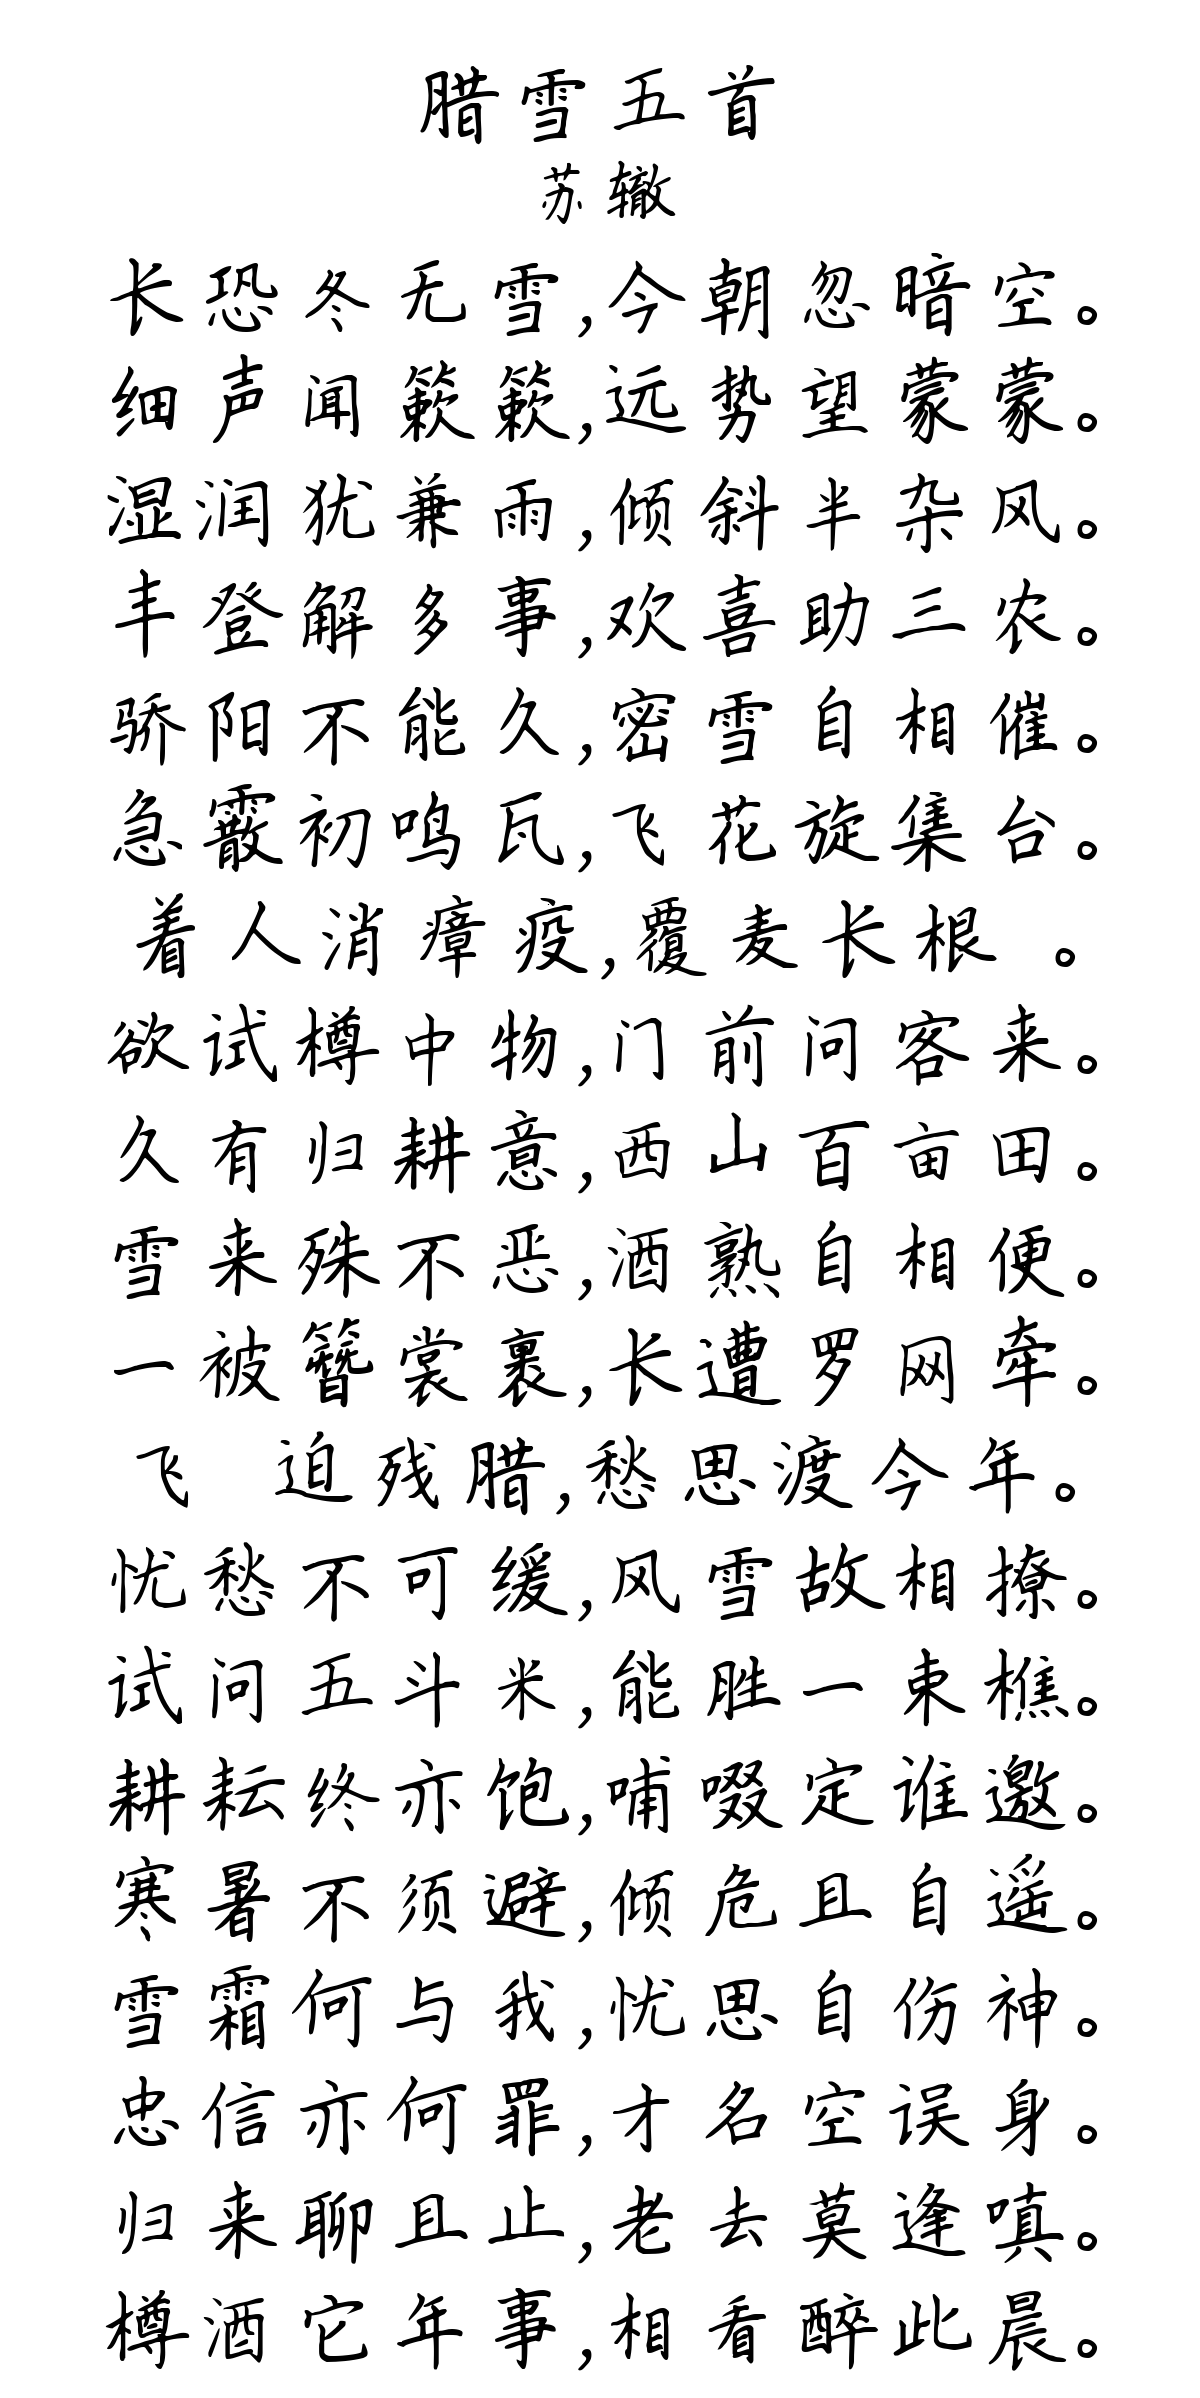 腊雪五首
苏辙
长恐冬无雪,今朝忽暗空。
细声闻簌簌,远势望蒙蒙。
湿润犹兼雨,倾斜半杂风。
丰登解多事,欢喜助三农。
骄阳不能久,密雪自相催。
急霰初鸣瓦,飞花旋集台。
着人消瘴疫,覆麦长根 。
欲试樽中物,门前问客来。
久有归耕意,西山百亩田。
雪来殊不恶,酒熟自相便。
一被簪裳裹,长遭罗网牵。
飞 迫残腊,愁思渡今年。
忧愁不可缓,风雪故相撩。
试问五斗米,能胜一束樵。
耕耘终亦饱,哺啜定谁邀。
寒暑不须避,倾危且自遥。
雪霜何与我,忧思自伤神。
忠信亦何罪,才名空误身。
归来聊且止,老去莫逢嗔。
樽酒它年事,相看醉此晨。